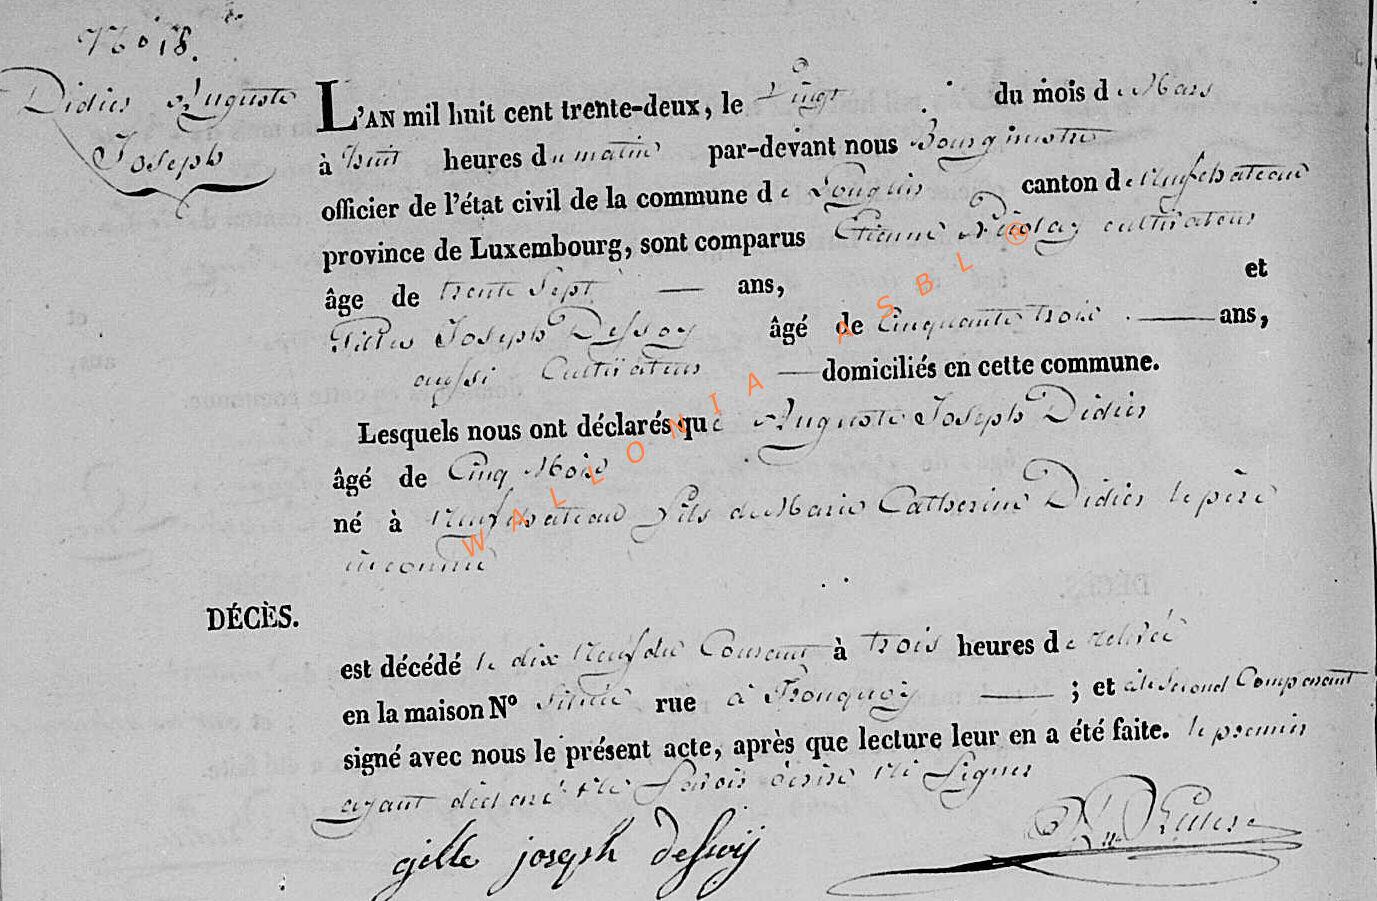 N.° 18.
Didier Auguste
Joseph
L'AN mil huit cent trente-deux, le Vingt du mois de Mars
à huit heures du matin par-devant nous Bourgmestre
officier de l'état civil de la commune de Longlier canton de Neufchateau
province de Luxembourg, sont comparus Etienne Nicolay cultivateur
âge de trente Sept — ans, et
Gilles Joseph Dessoy âgé de Cinquante trois — ans,
aussi Cultivateur — domiciliés en cette commune.
Lesquels nous ont déclarés que Auguste Joseph Didier
âgé de Cinq Mois
né à Neufchateau fils de Marie Catherine Didier le père
inconnu
DÉCÈS.
est décédé le dix Neuf du Courant à trois heures de relevée
en la maison N° Située rue à Tronquoy — ; et a le Second Comparant
signé avec nous le présent acte, après que lecture leur en a été faite. le premier
ayant déclaré Ne Savoir écrire Ni Signer
gille joseph dessoij
WALLONIA ASBL ®